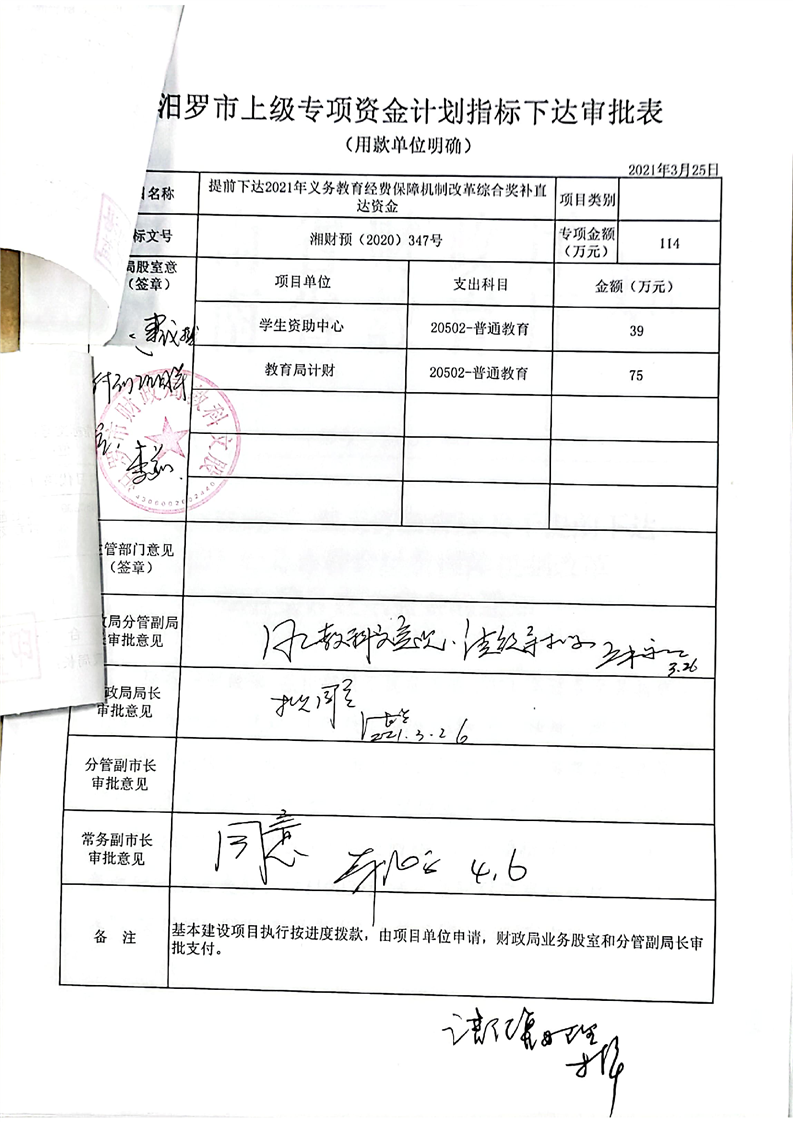 汨罗市上级专项资金计划指标下达审批表
（用款单位明确）
2021年3月25日
名称
提前下达2021年义务教育经费保障机制改革综合奖补直
达资金
项目类别
标文号
湘财预（2020）347号
专项金额
（万元）
114
局股室意
（签章）
项目单位
支出科目
金额（万元）
学生资助中心
20502-普通教育
39
教育局计财
20502-普通教育
75
财政局教科文股
管部门意见
（签章）
局分管副局
审批意见
3.26
政局局长
审批意见
2021.3.26
分管副市长
审批意见
常务副市长
审批意见
同意
4.6
备 注
基本建设项目执行按进度拨款，由项目单位申请，财政局业务股室和分管副局长审
批支付。